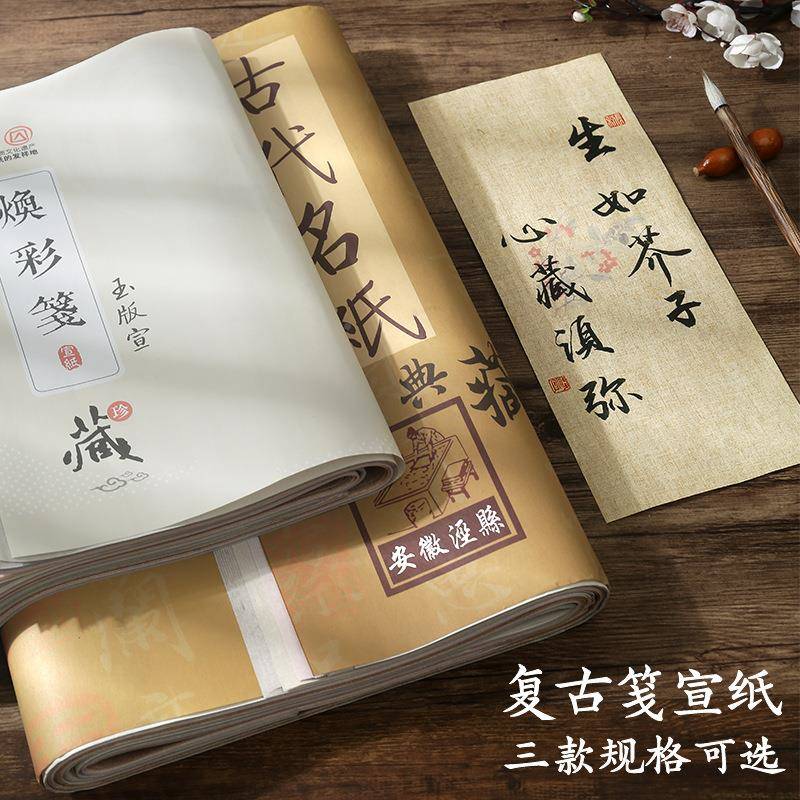 质文化遗产
的发祥地
煥彩箋
宣紙
玉版宣
珍
藏
古代名紙
典藏
安徽涇縣
生如芥子
心藏湏弥
复古笺宣纸
三款规格可选